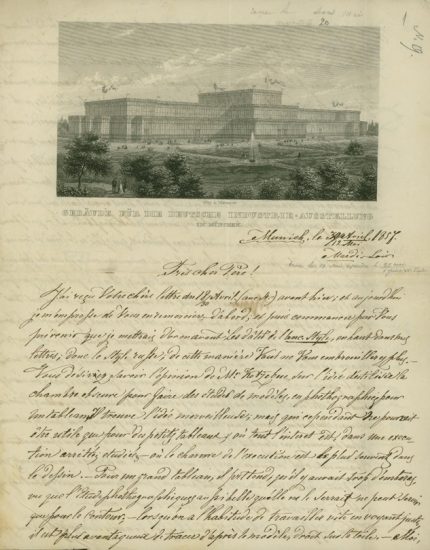 20
N. 9.
GEBÄUDE FÜR DIE DEUTSCHE INDUSTRIE-AUSSTELLUNG
IN MÜNCHEN.
Munich, le 30 Avril 1857.
12 Mai
Mardi Soir
Très cher Père!
J'ai reçu Votre chère lettre du 12 Avril (anc. St.) avant hier; et aujourd'hui
je m'empresse de Vous en remercier d'abord, et puis commencer par Vous
prévenir que je mettrai dorénavant les dates de l'anc. Style, en haut de mes
lettres, donc le Style russe; de cette manière Vous ne Vous embrouillerez plus.
Vous désirez savoir l'opinion de Mr Kotzebue sur l'idée d'utiliser la
chambre obscure pour faire des études de modèles, en photographie, pour
un tableau. Il trouve l'idée merveilleuse, mais que cependant elle pourrait
être utile que pour de petits tableaux, où tout l'intérêt est dans une execu-
tion arretée, étudiée, où le charme de l'execution est le plus souvent dans
le dessin. Pour un grand tableau, il prétend, qu'il y aurait trop d'embarras,
vu que l'étude photographique, aussi belle qu'elle ne le serait, ne peut servir
que pour le contour, lorsqu'on a l'habitude de travailler vite en voyant juste,
il est plus avantageux de tracer d'après le modèle, droit sur la toile.